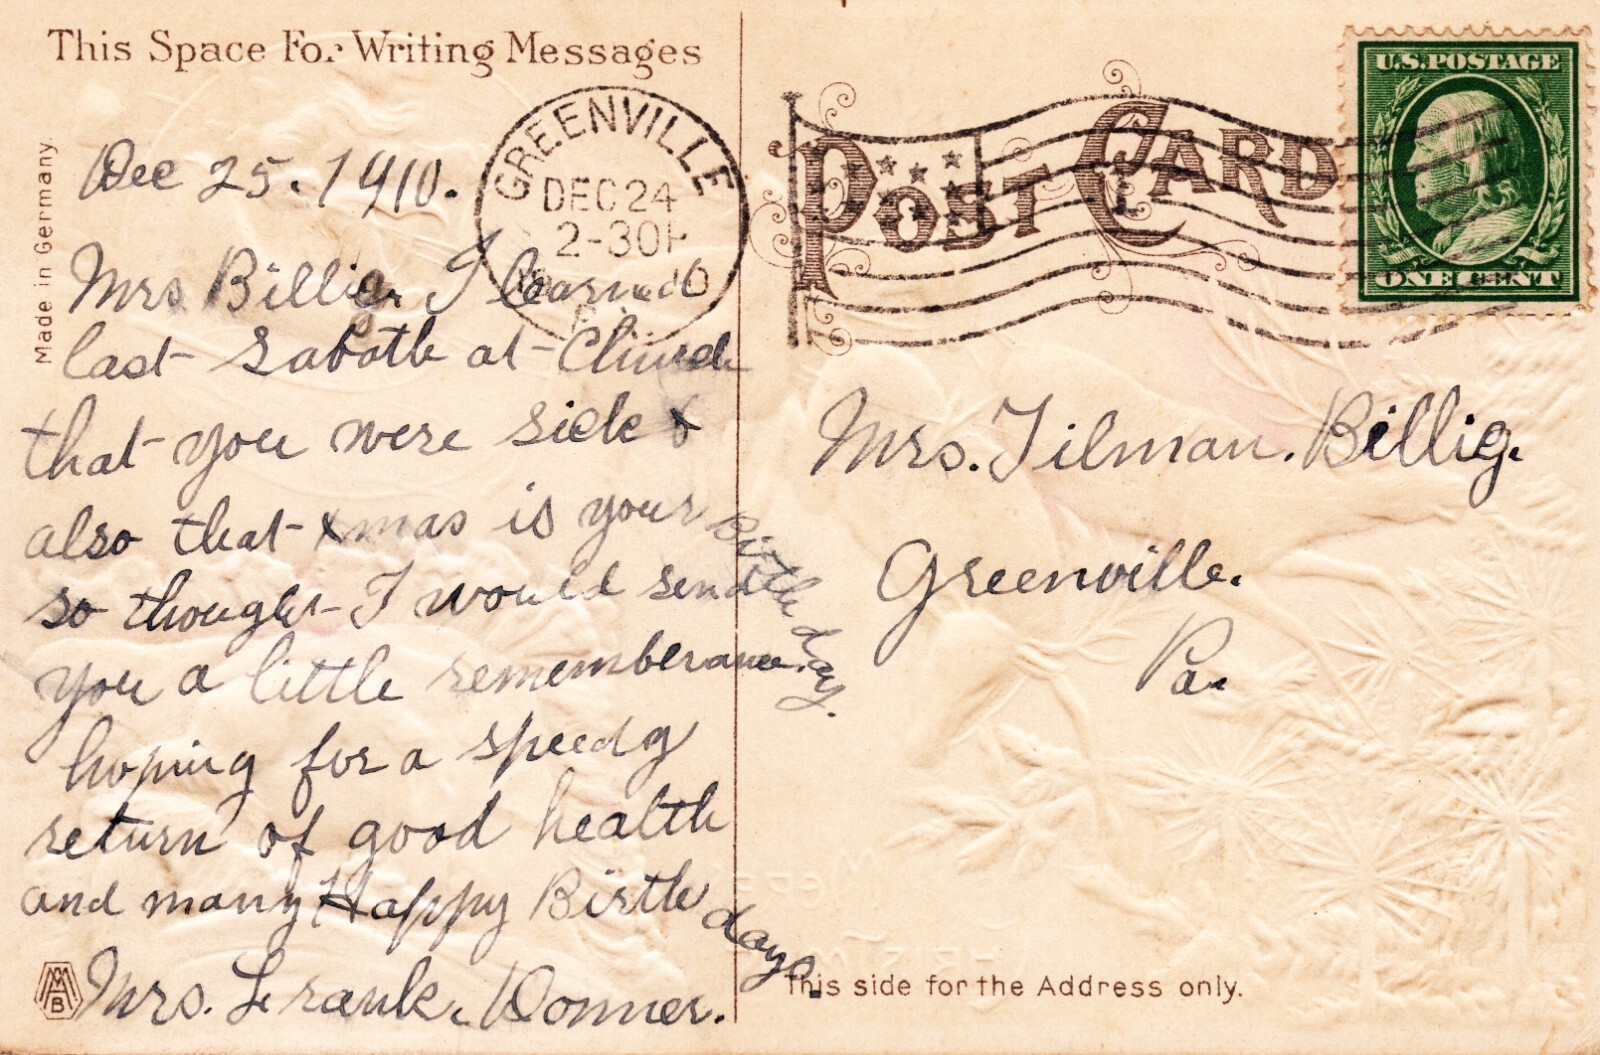 This Space For Writing Messages
Made in Germany.
Dec 25. 1910.
Mrs Billig. I learned
last Sabath at Church
that you were sick &
also that Xmas is your Birthday.
so thought I would send
you a little rememberance.
hoping for a speedy
return of good health
and many Happy Birthdays.
Mrs. Frank. Donner.
MMB
GREENVILLE
DEC 24
2-30P
10
PA.
POST CARD
U.S. POSTAGE
ONE CENT
Mrs. Tilman. Billig.
Greenville.
Pa.
This side for the Address only.